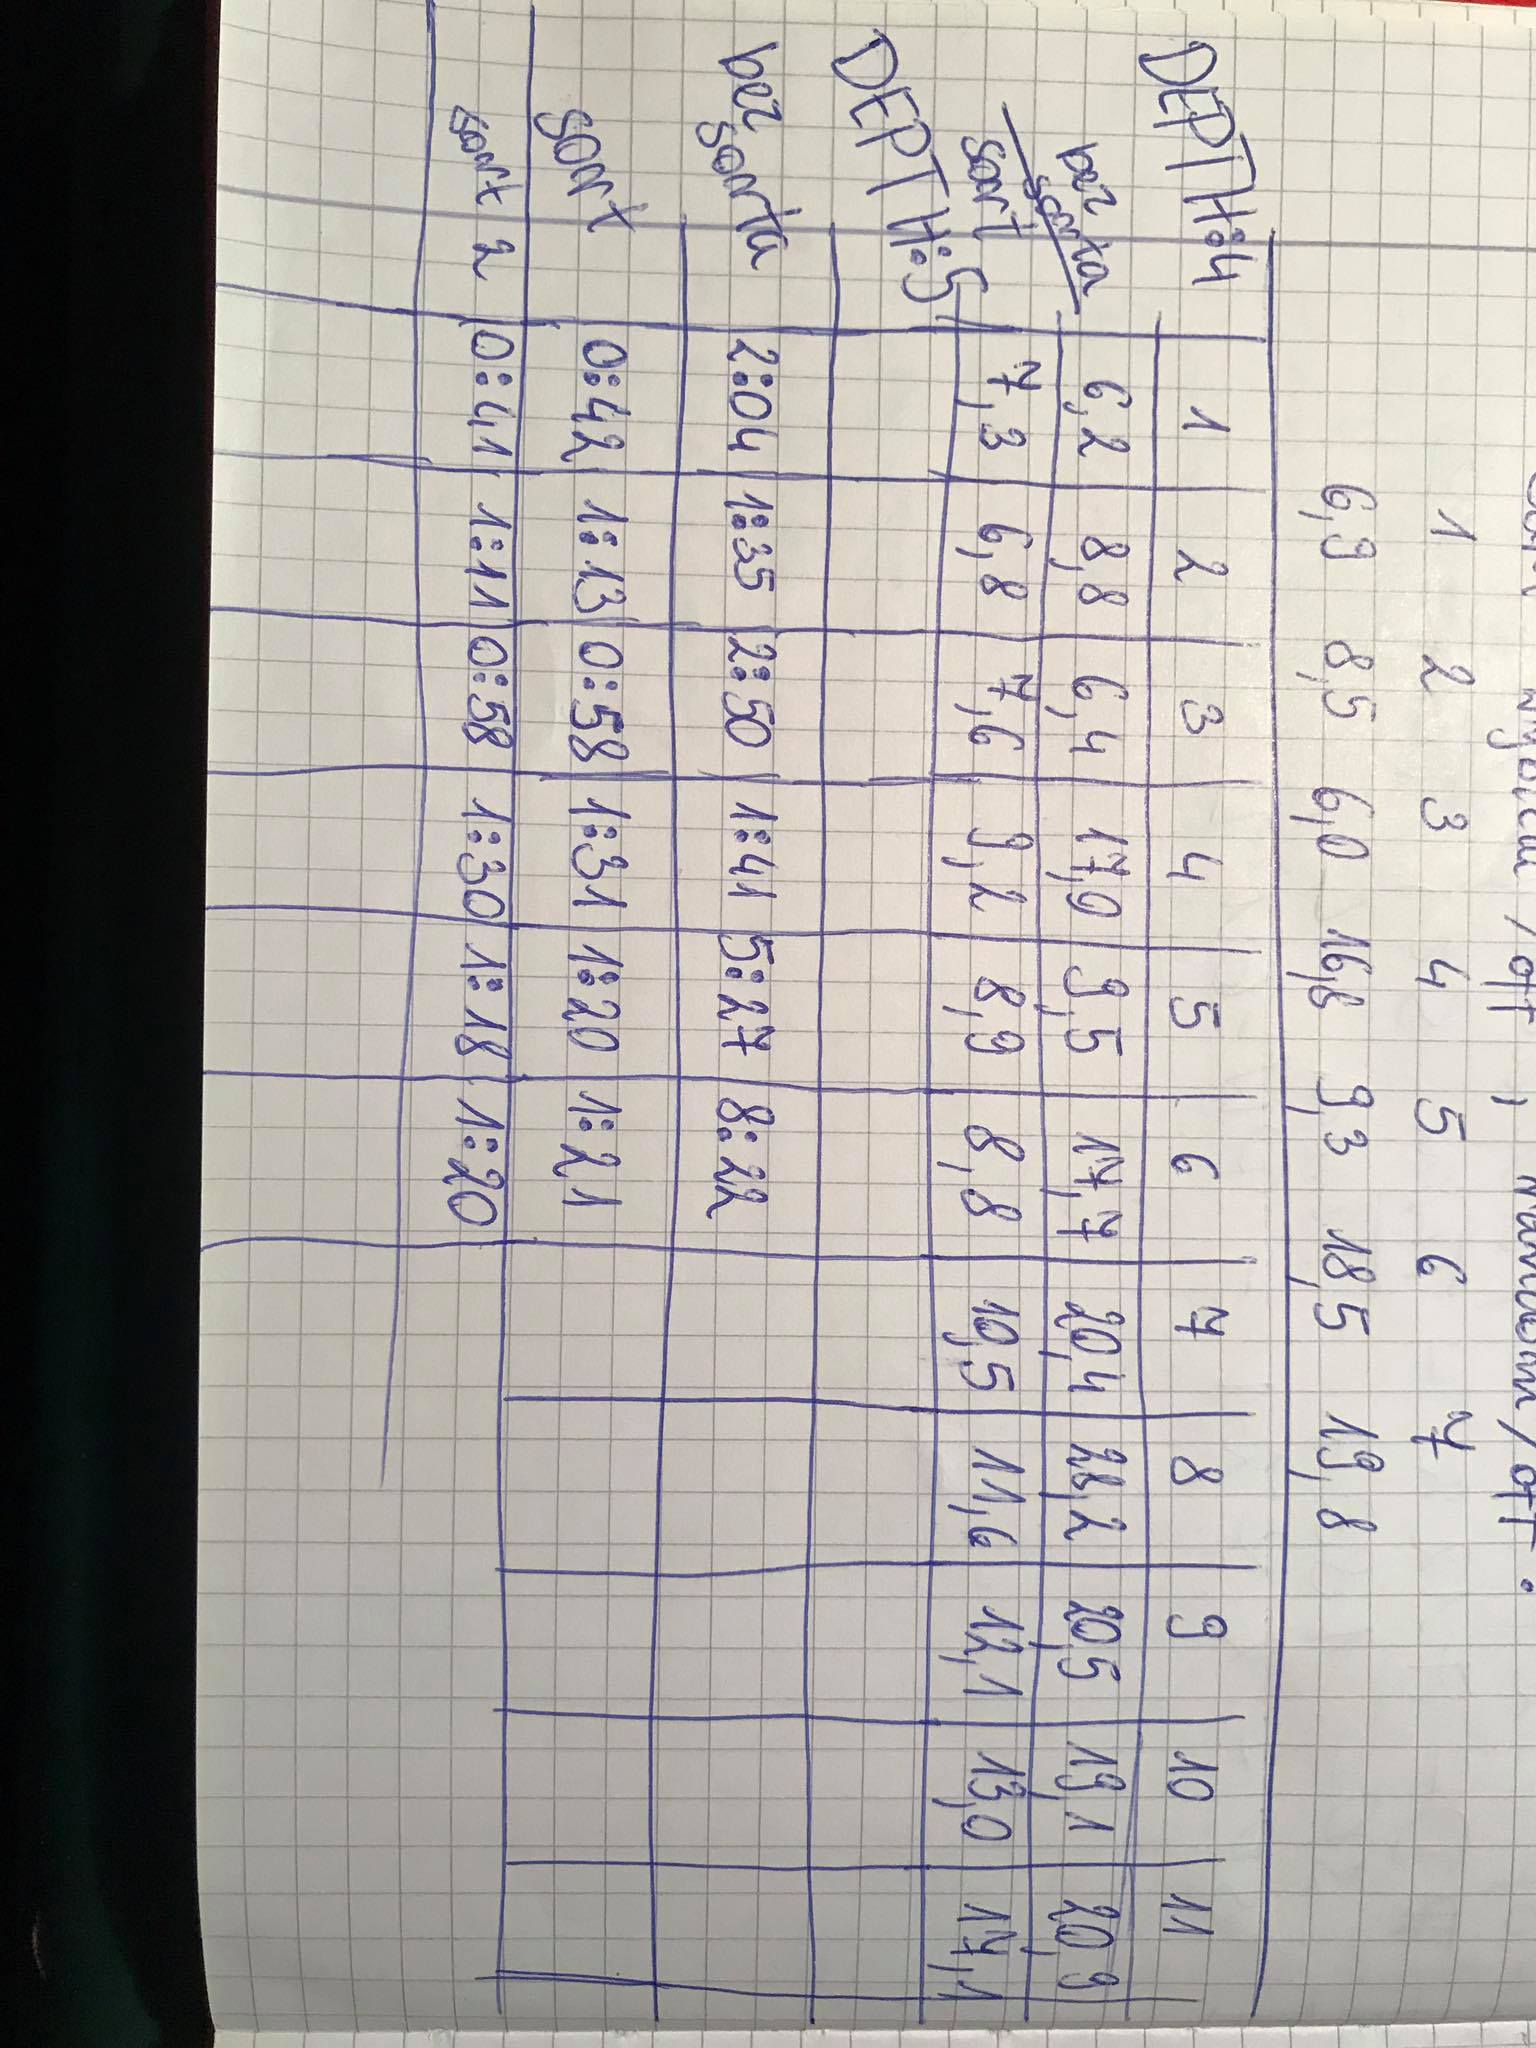 /off , random/off .
1 2 3 4 5 6 7
6,9 8,5 6,0 16,8 9,3 18,5 19,8
DEPTH:4 1 2 3 4 5 6 7 8 9 10 11
bez sorta 6,2 8,8 6,4 17,0 9,5 17,7 20,4 28,2 20,5 19,1 20,9
sort 7,3 6,8 7,6 9,2 8,9 8,8 10,5 11,6 12,1 13,0 17,1
DEPTH:5
bez sorta 2:04 1:35 2:50 1:41 5:27 8:22
sort 0:42 1:13 0:58 1:31 1:20 1:21
sort 2 0:41 1:11 0:58 1:30 1:18 1:20